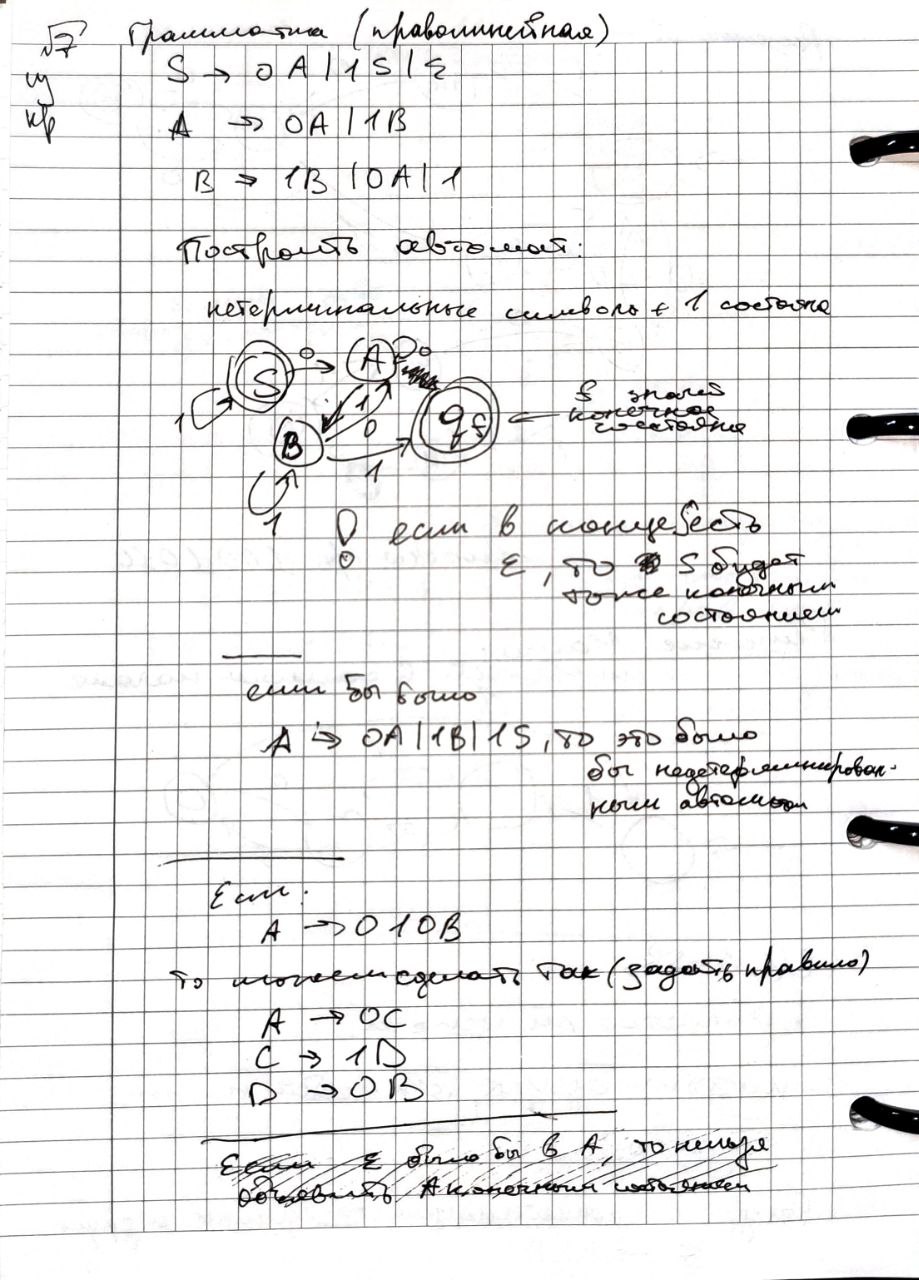 √7 Грамматика (праволинейная)
из
кр
S → 0A | 1S | ε
A → 0A | 1B
B → 1B | 0A | 1
Построить автомат:
нетерминальные символы + 1 состояние
S 0 A 0
1 1 0 B 1 1 qf
← f значит
конечное
состояние
! если в конце S есть
ε, то S будет
тоже конечным
состоянием
если бы было
A → 0A | 1B | 1S, то это было
бы недетерминирован-
ным автоматом
Если:
A → 010B
то можем сделать так (задать правило)
A → 0C
C → 1D
D → 0B
Если ε было бы в A, то нельзя
объявить A конечным состоянием